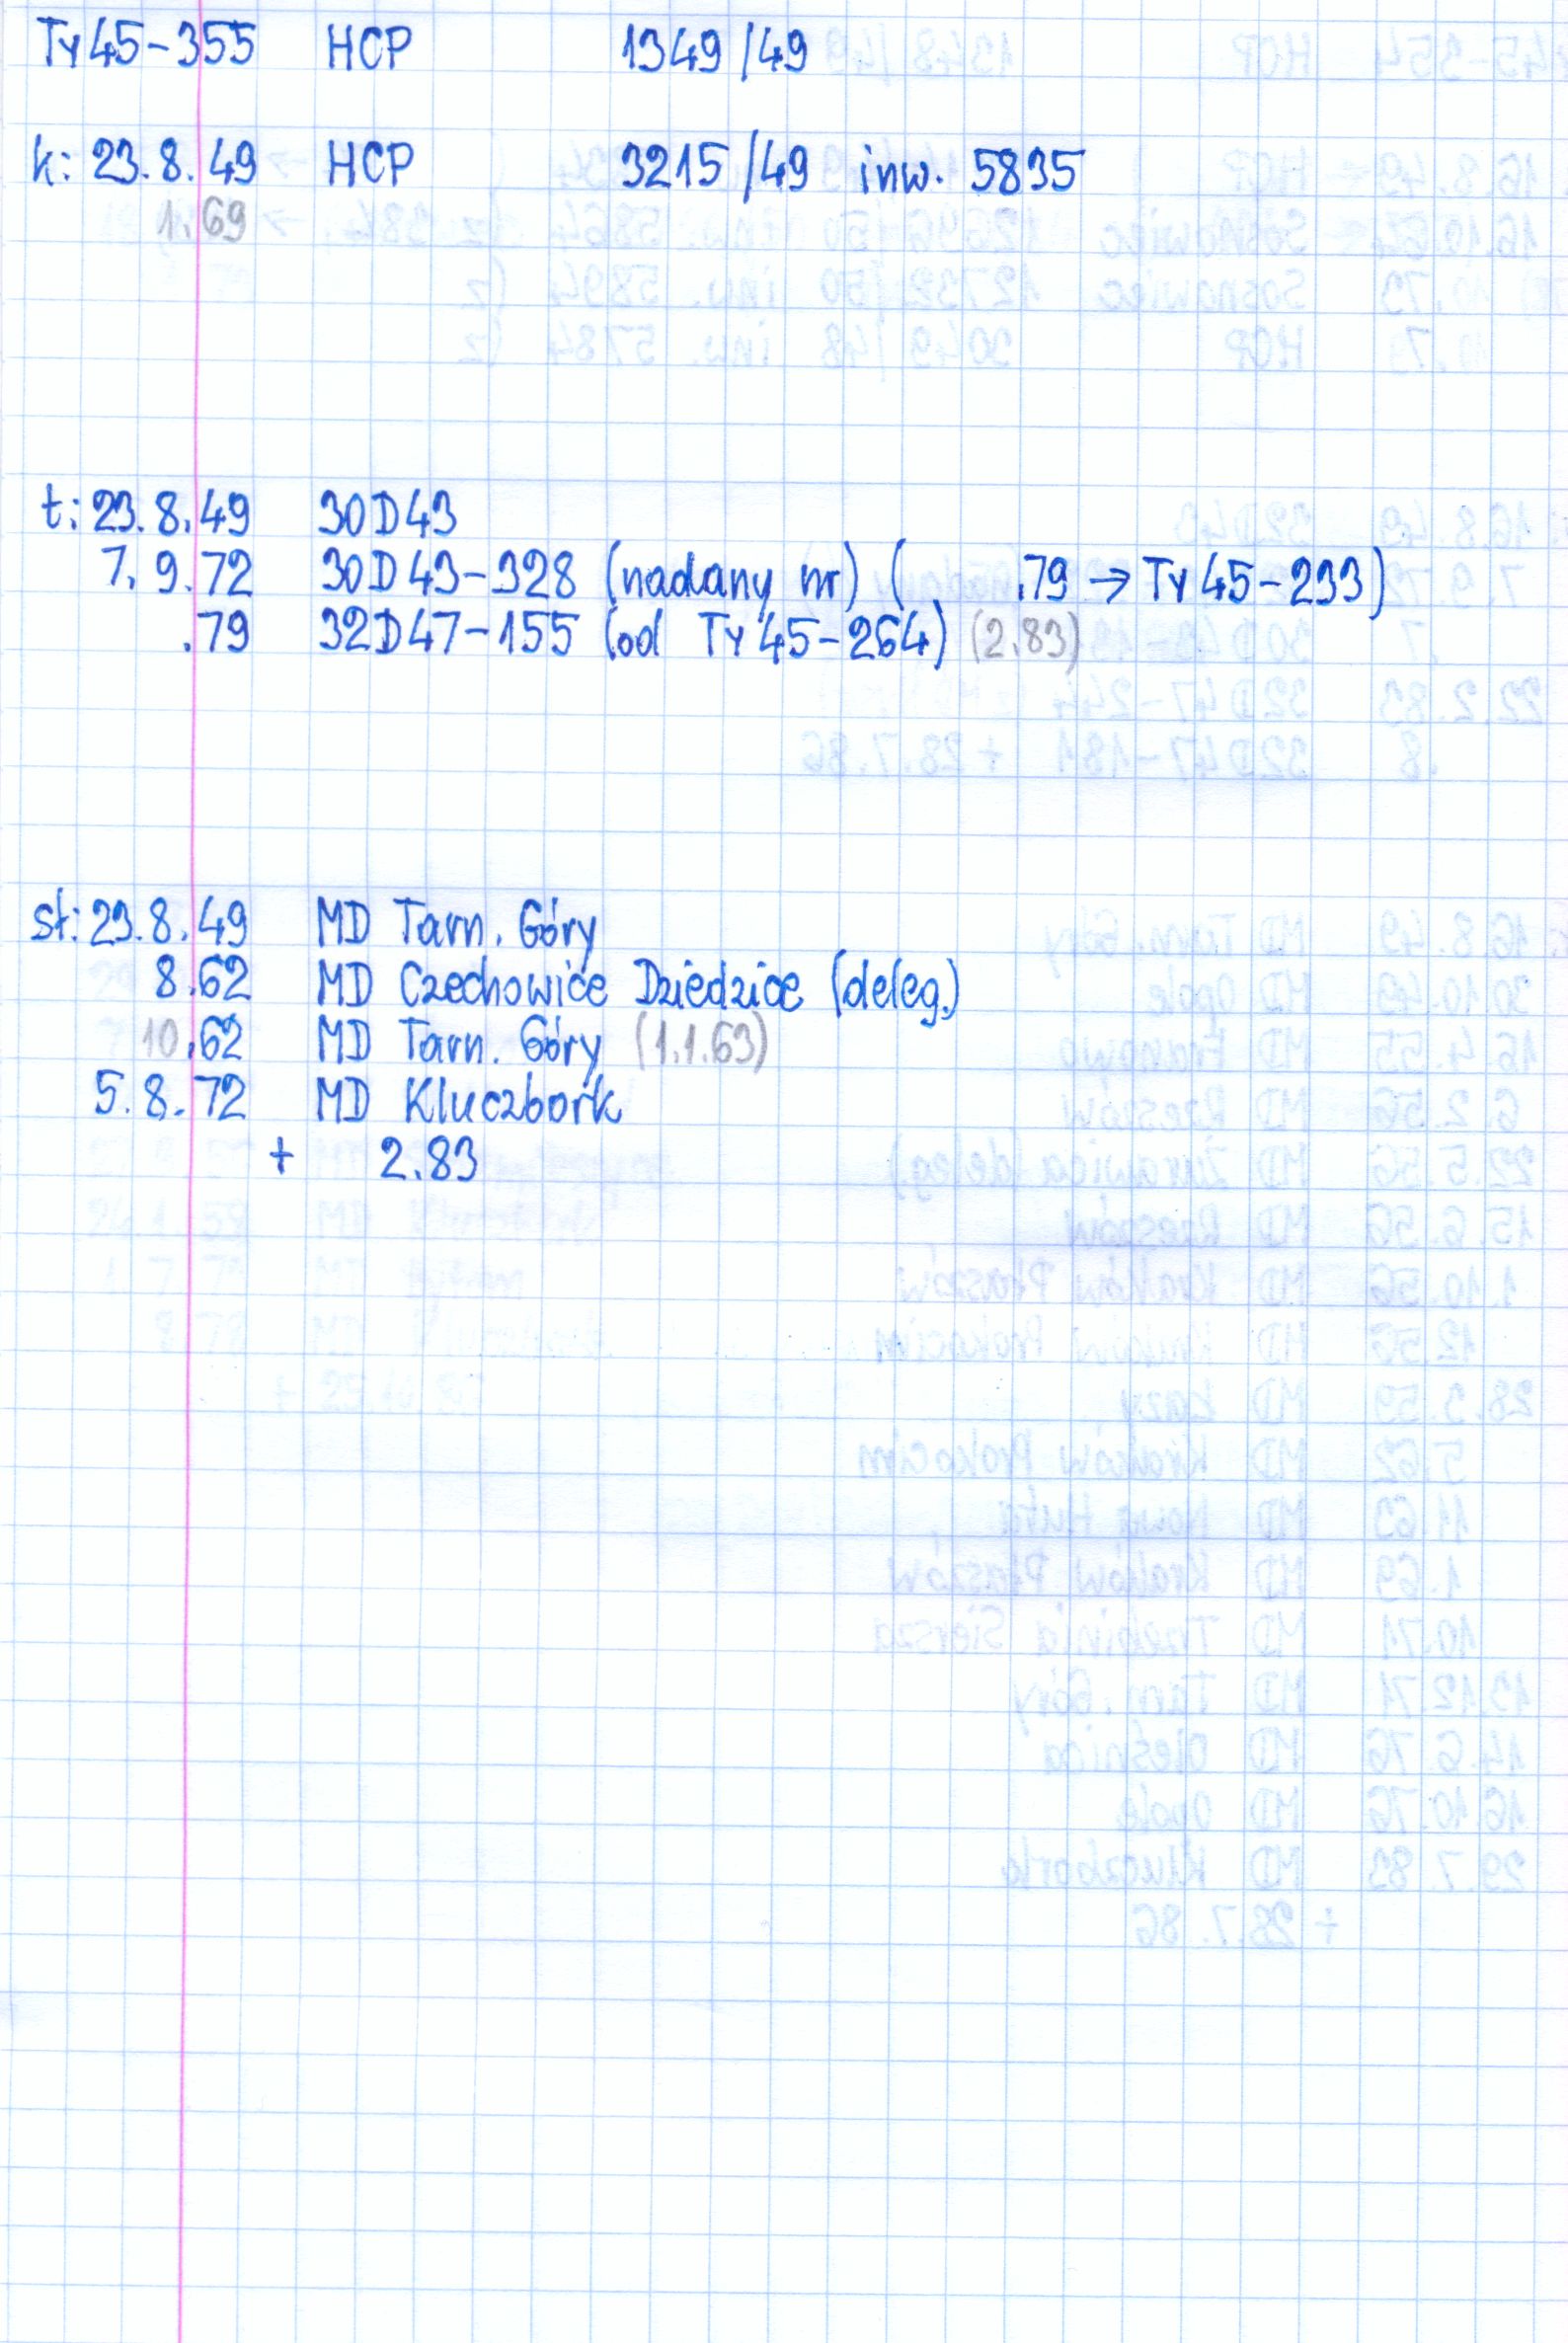 Ty45-355 HCP 1349/49
k: 23.8.49 HCP 3215/49 inw. 5835
1.69
t: 23.8.49 30D43
7.9.72 30D43-328 (nadany nr) ( .79 → Ty45-233)
.79 32D47-155 (od Ty45-264) (2.83)
st: 23.8.49 MD Tarn. Góry
8.62 MD Czechowice Dziedzice (deleg.)
10.62 MD Tarn. Góry (1.1.63)
5.8.72 MD Kluczbork
+ 2.83